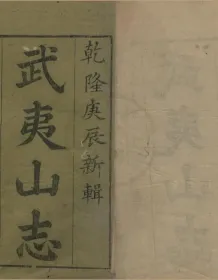 乾隆庚辰新輯
武夷山志